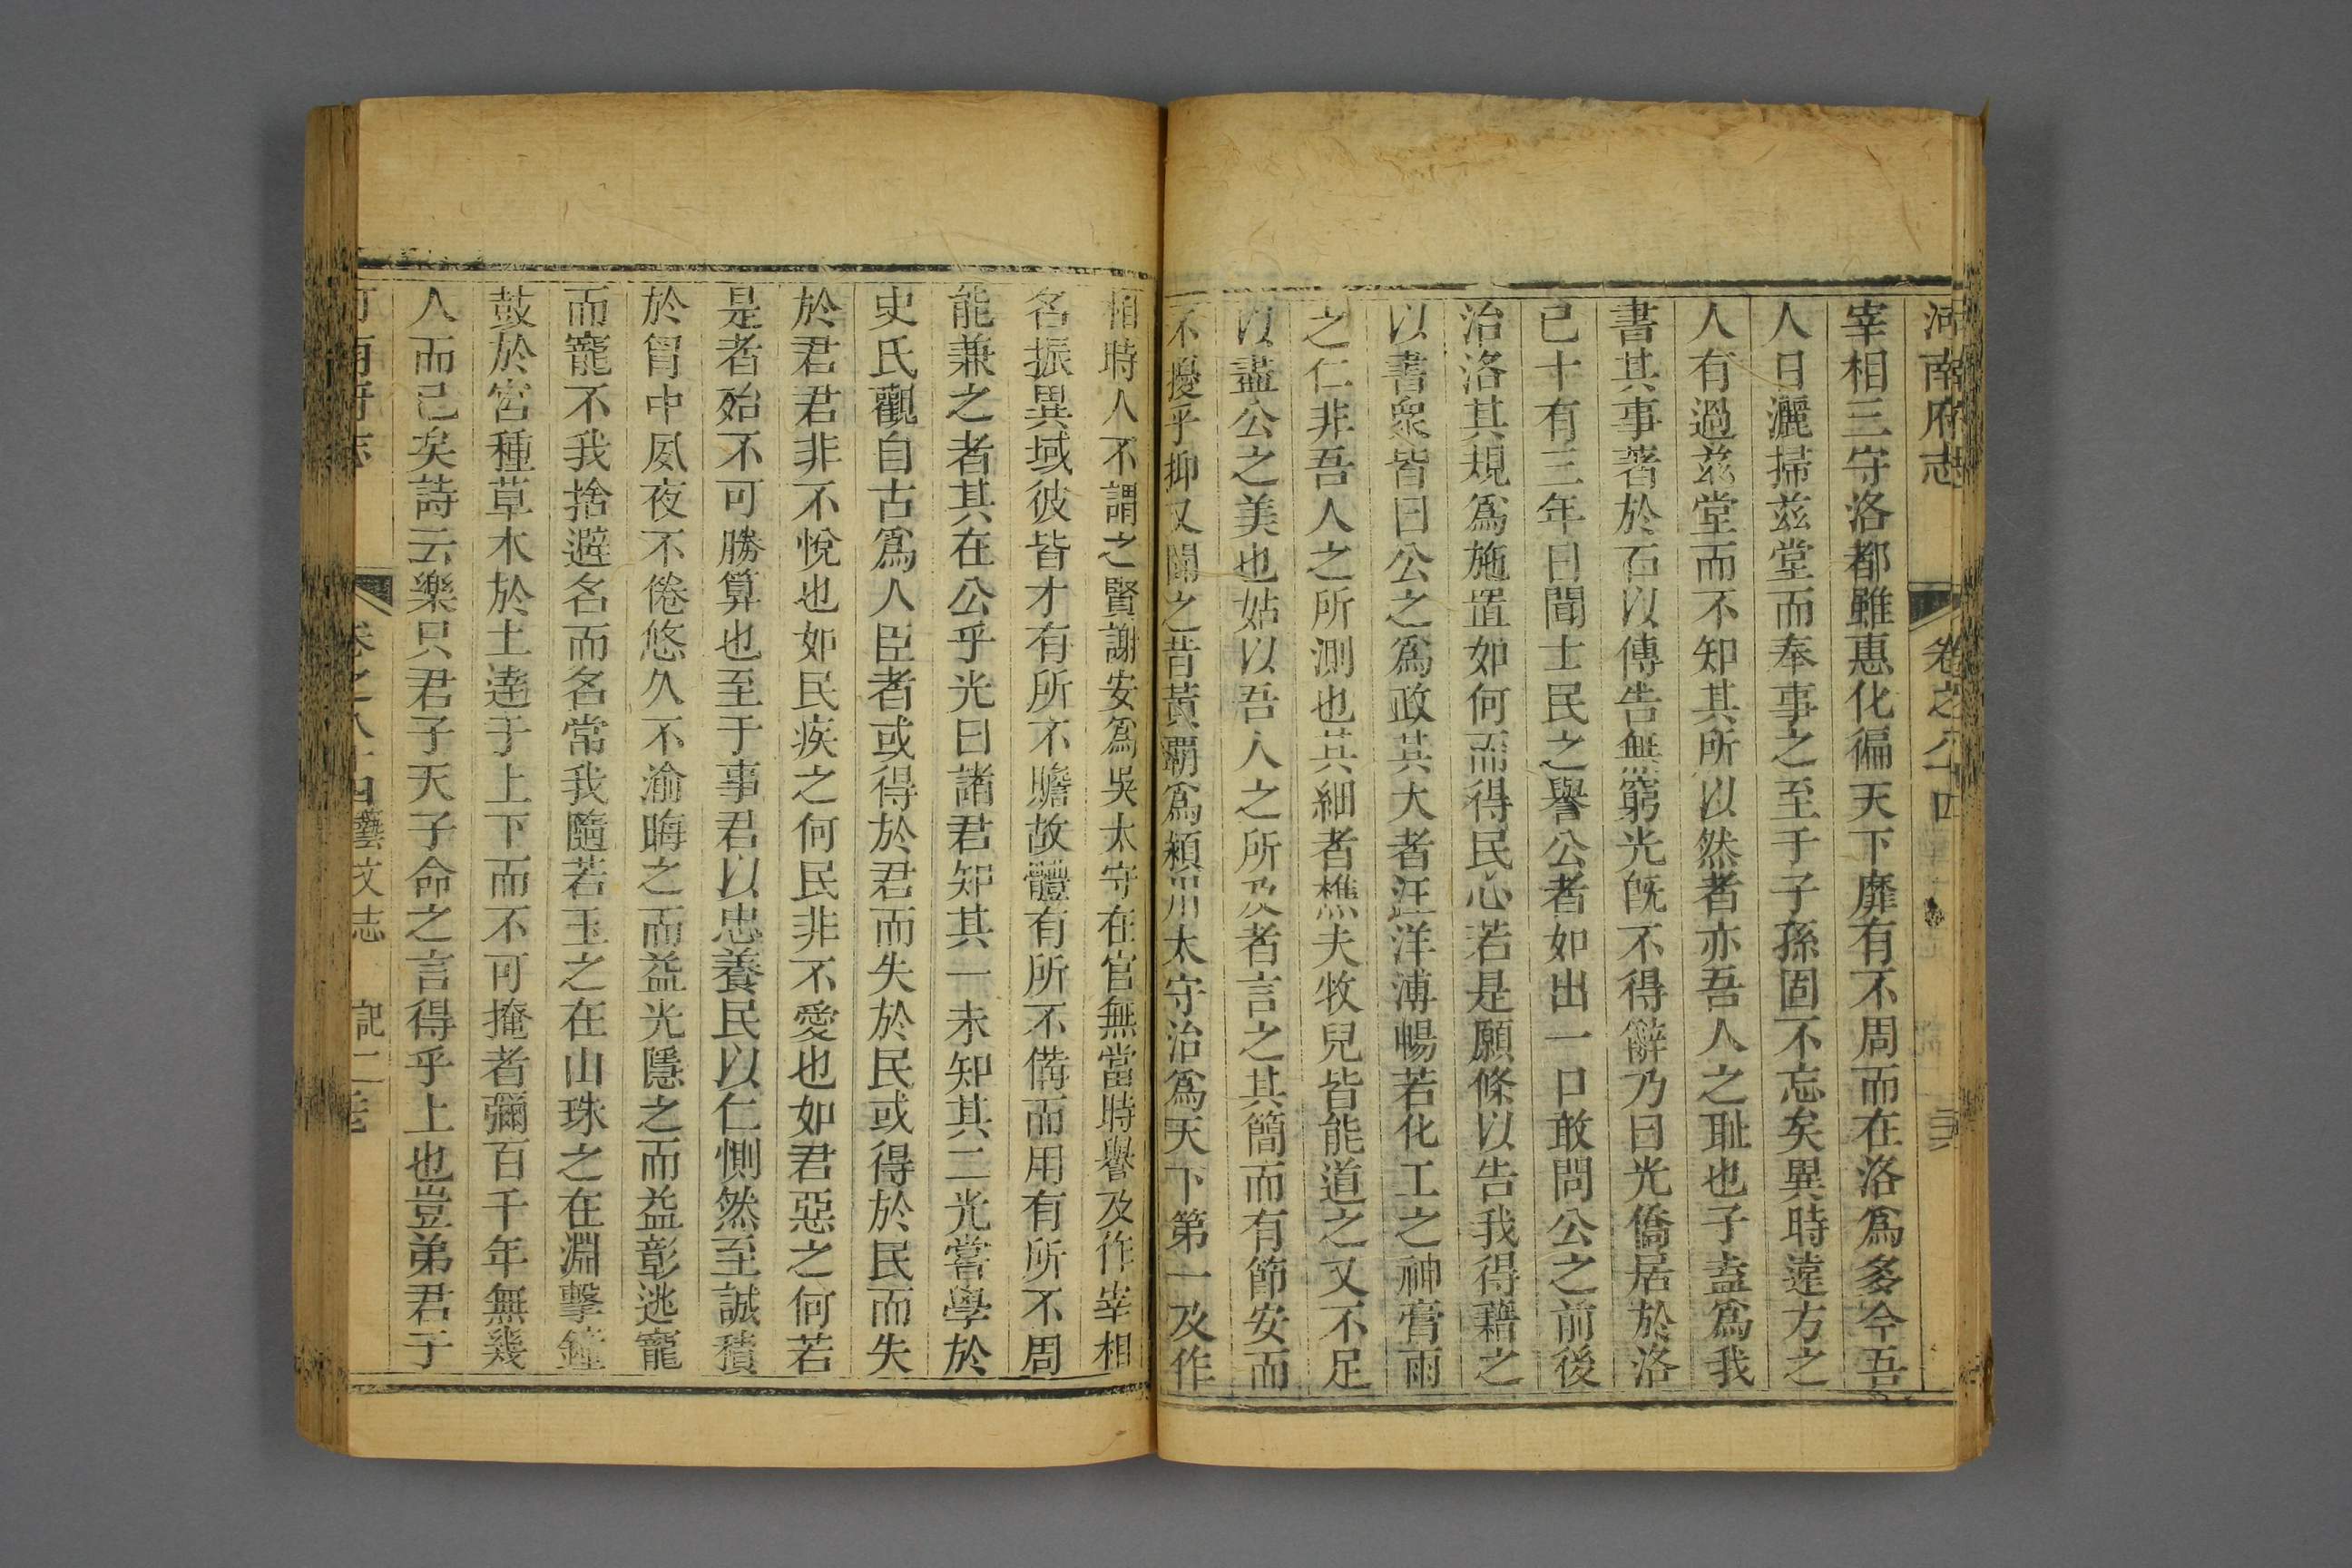 河南府志 卷之八十四
宰相三守洛都雖惠化徧天下靡有不周而在洛爲多今吾
人日灑掃茲堂而奉事之至于子孫固不忘矣異時遠方之
人有過茲堂而不知其所以然者亦吾人之耻也子盍爲我
書其事著於石以傳告無窮光旣不得辭乃曰光僑居於洛
已十有三年日聞士民之譽公者如出一口敢問公之前後
治洛其規爲施置如何而得民心若是願條以告我得藉之
以書衆皆曰公之爲政其大者汪洋溥暢若化工之神膏雨
之仁非吾人之所測也其細者樵夫牧兒皆能道之又不足
以盡公之美也姑以吾人之所及者言之其簡而有節安而
不擾乎抑又聞之昔黃霸爲潁川太守治爲天下第一及作
相時人不謂之賢謝安爲吳太守在官無當時譽及作宰相
名振異域彼皆才有所不贍故體有所不備而用有所不周
能兼之者其在公乎光曰諸君知其一未知其二光嘗學於
史氏觀自古爲人臣者或得於君而失於民或得於民而失
於君君非不悅也如民疾之何民非不愛也如君惡之何若
是者殆不可勝算也至于事君以忠養民以仁惻然至誠積
於胷中夙夜不倦悠久不渝晦之而益光隱之而益彰逃寵
而寵不我捨避名而名常我隨若玉之在山珠之在淵擊鐘
鼓於宮種草木於土達于上下而不可掩者彌百千年無幾
人而已矣詩云樂只君子天子命之言得乎上也豈弟君子
河南府志 卷之八十四 藝文志 記二